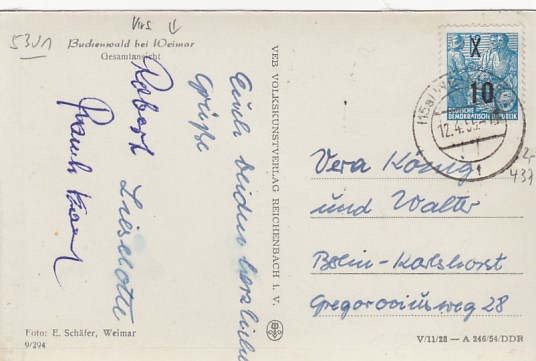 53J1
Buchenwald bei Weimar
Gesamtansicht
Euch beiden herzliche
Grüße
Lieselotte
Robert
Foto: E. Schäfer, Weimar
9/294
VEB VOLKSKUNSTVERLAG REICHENBACH I. V.
X
10
DEUTSCHE
DEMOKRATISCHE REPUBLIK
(15a)
12.4.55
437
Vera König
und Walter
Berlin-Karlshorst
Gregoroviusweg 28
V/11/28 — A 246/54/DDR